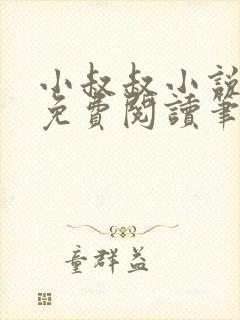 小叔叔小說
免費閱讀筆
童群益